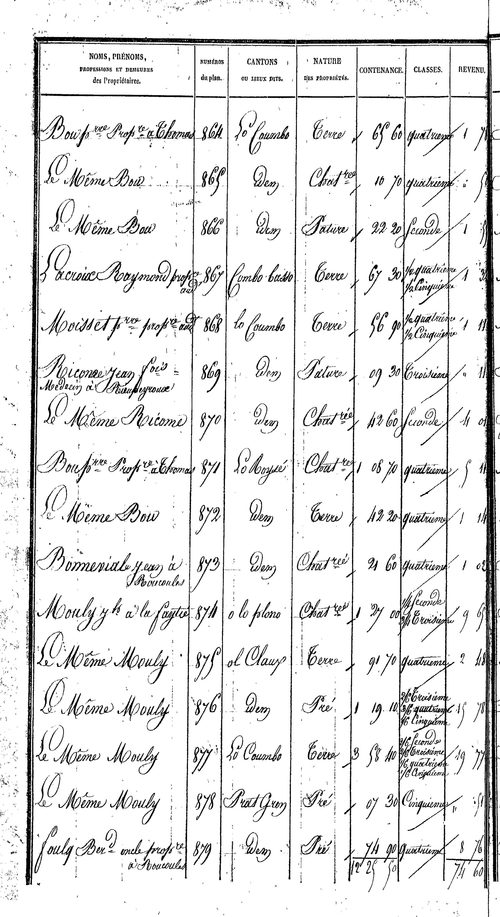 NOMS, PRÉNOMS, PROFESSIONS ET DEMEURES des Propriétaires. NUMÉROS du plan. CANTONS OU LIEUX DITS. NATURE DES PROPRIÉTÉS. CONTENANCE. CLASSES. REVENU.
Bou prre Propre à Thomas 864 Lo Coumbo Terre 65 60 quatrieme 1
Le Même Bou 865 idem Chatrée 10 70 quatrieme
Le Même Bou 866 idem Pature 22 20 Seconde 1
Lacroix Raymond propre 867 Combo baisso Terre 67 30 quatrieme Cinquieme 1
Moisset prre propre 868 lo Coumbo Terre 56 90 quatrieme Cinquieme 1 11
Ricome Jean fois Medecin à Rieupeyroux 869 idem Pature 09 30 Troisieme 11
Le Même Ricome 870 idem Chatrée 42 60 Seconde 4
Bou prre Propre à Thomas 871 Chatrée 1 08 70 quatrieme 5 11
Le Même Bou 872 idem Terre 42 20 quatrieme 1 14
Bonneviale Jean à Roucoules 873 idem Chatrée 21 60 quatrieme 1 02
Mouly à la 874 o lo plono Chatrée 1 27 00 Seconde Troisieme 9
Le Même Mouly 875 ol Claux Terre 91 70 quatrieme 2 48
Le Même Mouly 876 idem Pré 1 19 10 Troisieme quatrieme Cinquieme 15 78
Le Même Mouly 877 Lo Coumbo Terre 3 58 40 Seconde Troisieme quatrieme Cinquieme 19 77
Le Même Mouly 878 Prat Gron Pré 07 30 Cinquieme 51
Foulq Berd oncle propre à Roucoules 879 idem Pré 74 90 quatrieme 8 76
12 25 50 74 60